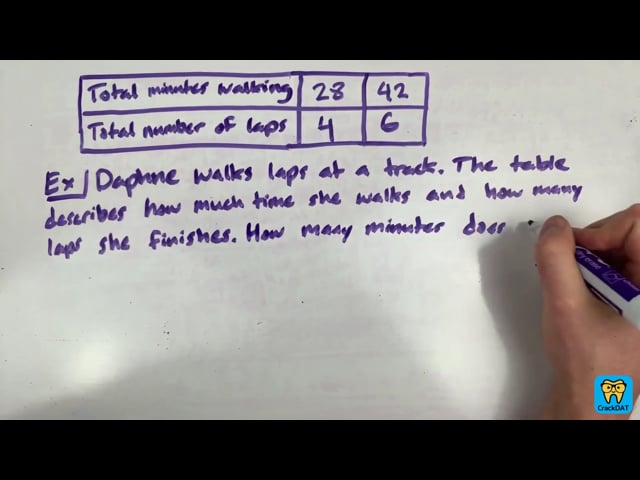 Total minutes walking 28 42
Total number of laps 4 6
Ex) Daphne walks laps at a track. The table
describes how much time she walks and how many
laps she finishes. How many minutes does
CrackDAT